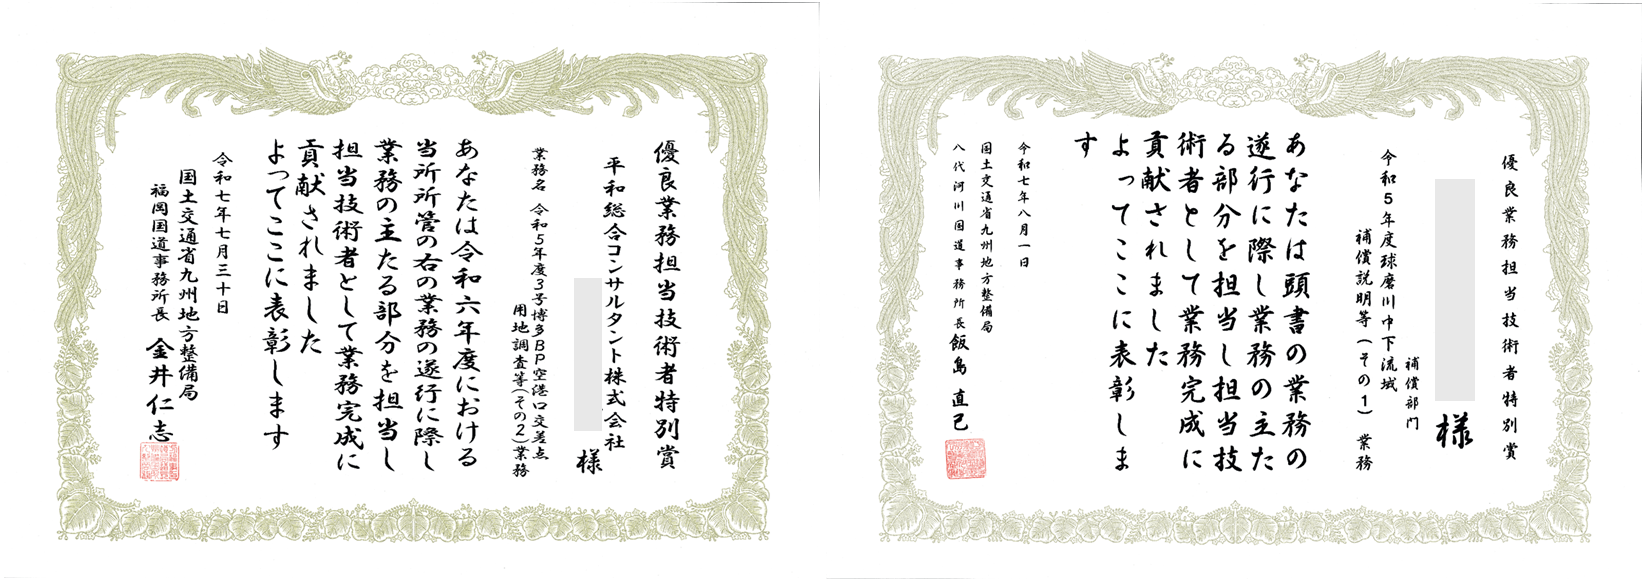 優良業務担当技術者特別賞
平和総合コンサルタント株式会社
様
業務名 令和5年度3号博多BP空港口交差点
用地調査等(その2)業務
あなたは令和六年度における
当所所管の右の業務の遂行に際し
業務の主たる部分を担当し
担当技術者として業務完成に
貢献されました
よってここに表彰します
令和七年七月三十日
国土交通省九州地方整備局
福岡国道事務所長 金井仁志
優良業務担当技術者特別賞
様
補償部門
令和5年度球磨川中下流域
補償説明等(その1) 業務
あなたは頭書の業務の
遂行に際し業務の主た
る部分を担当し担当技
術者として業務完成に
貢献されました
よってここに表彰しま
す
令和七年八月一日
国土交通省九州地方整備局
八代河川国道事務所長 飯島 直己